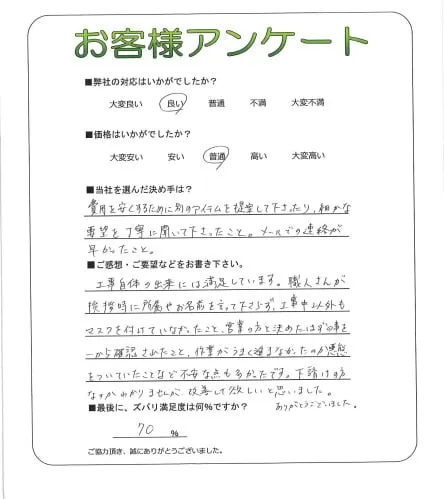 お客様アンケート
■弊社の対応はいかがでしたか?
大変良い 良い 普通 不満 大変不満
■価格はいかがでしたか?
大変安い 安い 普通 高い 大変高い
■当社を選んだ決め手は?
費用を安くするために別のアイテムを提案して下さったり、細かな
要望を丁寧に聞いて下さったこと。メールでの連絡が
早かったこと。
■ご感想・ご要望などをお書き下さい。
工事自体の出来には満足しています。職人さんが
挨拶時に所属やお名前を言って下さらず、工事中以外も
マスクを付けていなかったこと、営業の方と決めたはずの事を
一から確認されたこと、作業がうまく進まなかったのか悪態
をついていたことなど不安な点も多かったです。下請けの方
なのかわかりませんが、改善して欲しいと思いました。
ありがとうございました。
■最後に、ズバリ満足度は何%ですか?
70 %
ご協力頂き、誠にありがとうございました。